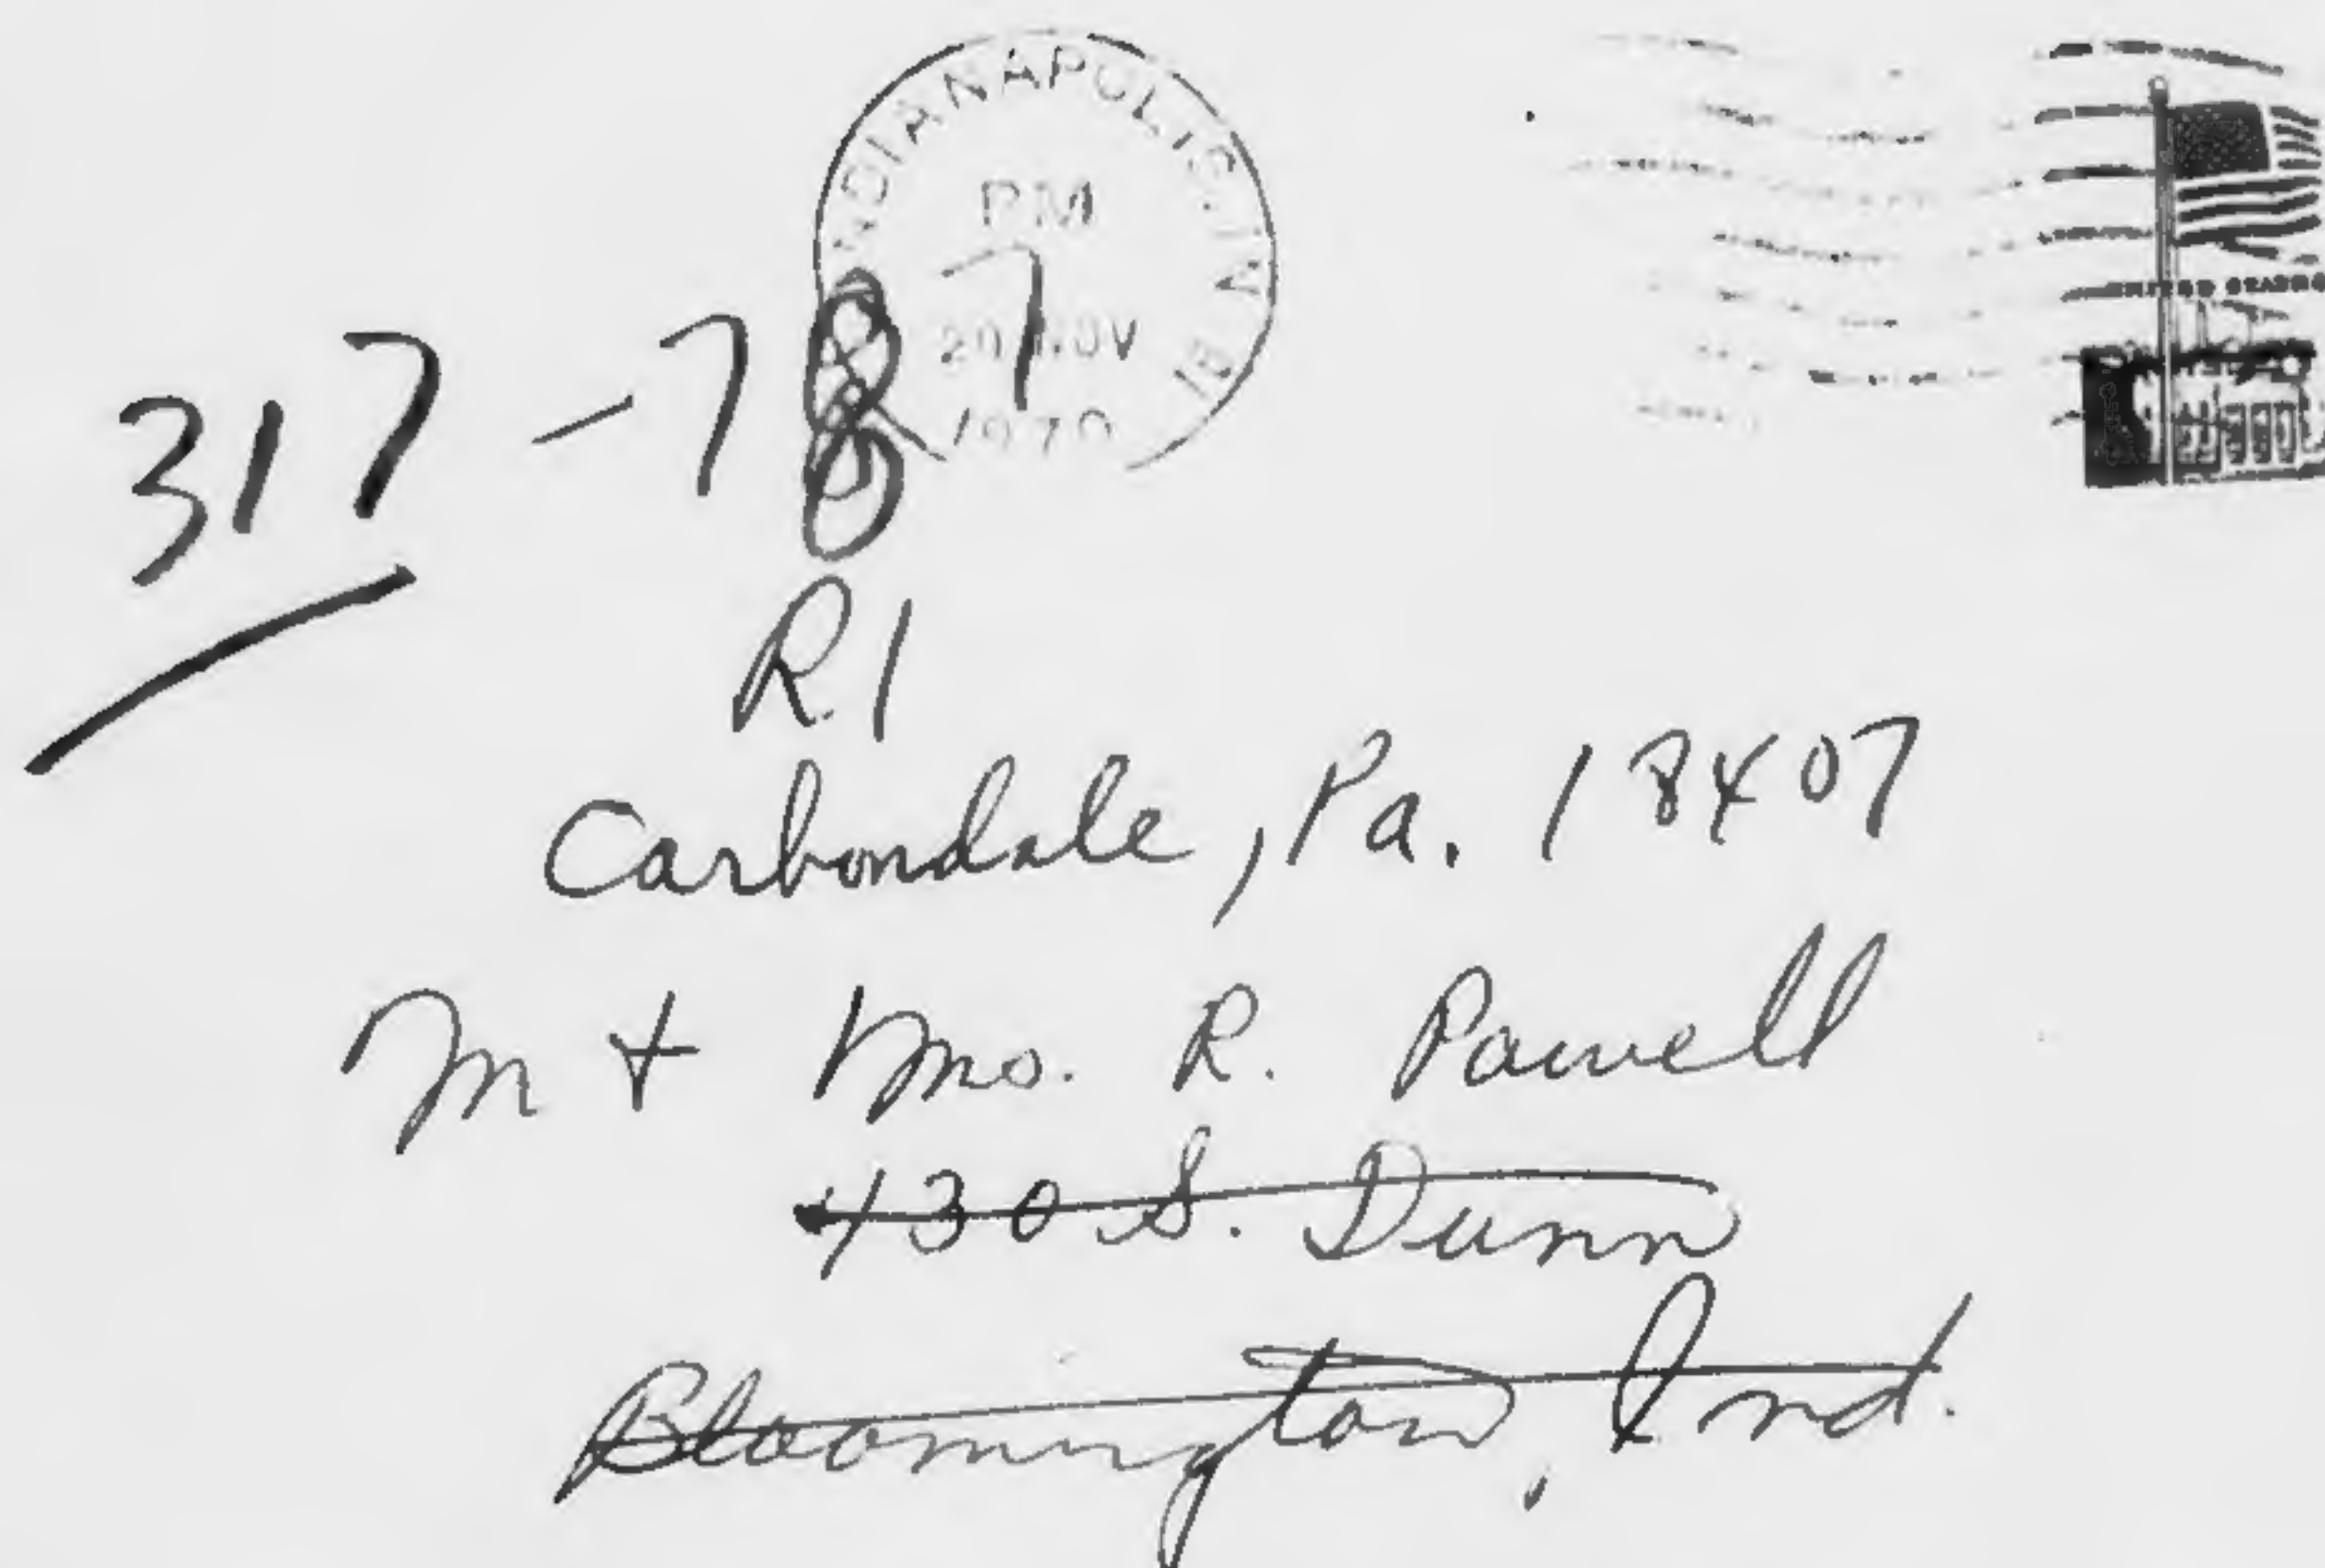 INDIANAPOLIS, IN
PM
20 NOV
1970
UNITED STATES
317-787
R.1
Carbondale, Pa. 18407
M + Mrs. R. Powell
430 S. Dunn
Bloomington, Ind.